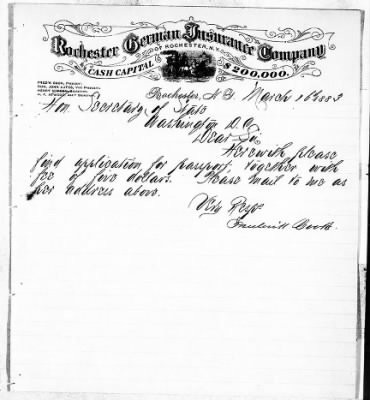 Rochester German Insurance Company
OF ROCHESTER, N.Y.
CASH CAPITAL $200,000.
FRED'K COOK, President.
Rochester, N.Y. March 16 1883
Hon Secretary of State
Washington D.C.
Dear Sir
Herewith please
find application for passport, together with
fee of five dollars. Please mail to me as
per address above.
Very Respy
Frederick Cook.